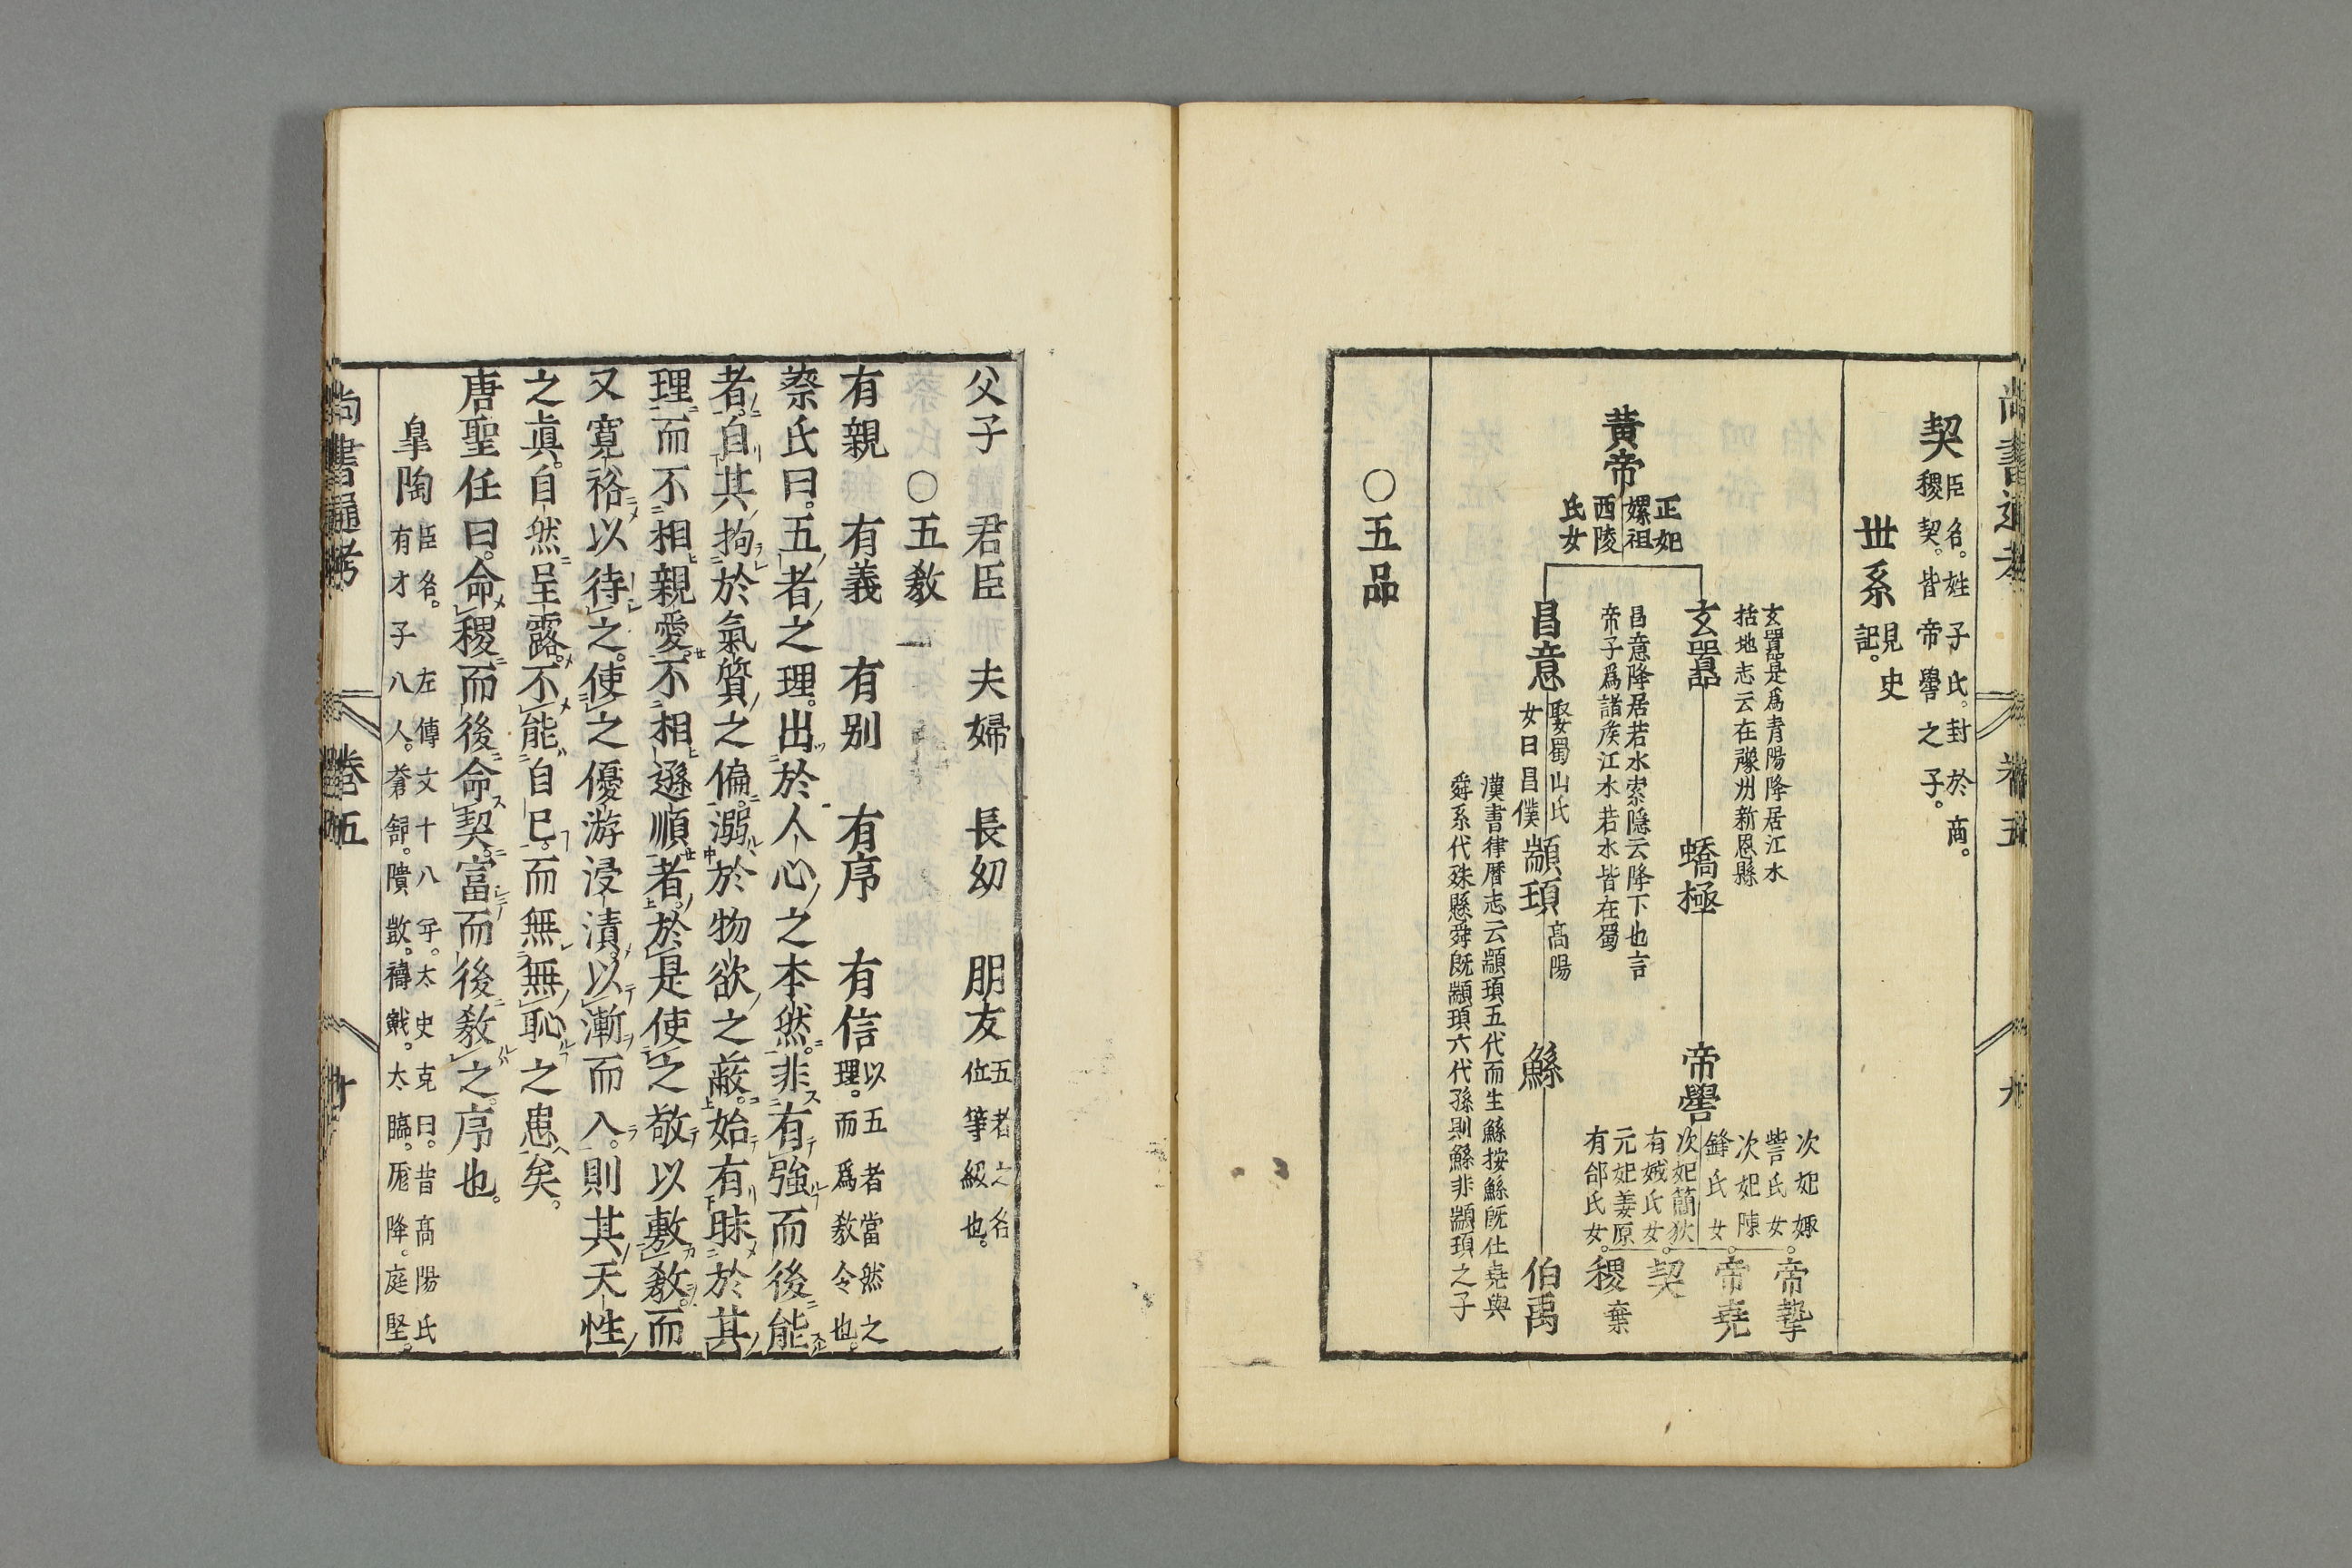 尚書通考
卷五
九
契
臣名。姓子氏。封於商。
稷契。皆帝嚳之子。
世系
見史
記。
黄帝
正妃
嫘祖
西陵
氏女
玄囂是爲青陽降居江水
括地志云在豫州新恩縣
玄囂
蟜極
帝嚳
次妃娵
訾氏女
帝摯
次妃陳
鋒氏女
帝堯
次妃簡狄
有娀氏女
契
元妃姜原
有郃氏女
稷
棄
昌意降居若水索隱云降下也言
帝子爲諸矦江水若水皆在蜀
昌意
娶蜀山氏
女曰昌僕
顓頊
高陽
鯀
伯禹
漢書律曆志云顓頊五代而生鯀按鯀旣仕堯與
舜系代殊懸舜旣顓頊六代孫則鯀非顓頊之子
○五品
父子 君臣 夫婦 長幼 朋友
五者之名
位等級也。
○五教
有親 有義 有别 有序 有信
以五者當然之
理。而爲教令也。
蔡氏曰。五者之理。出於人心之本然。非有強而後能
者。自其拘於氣質之偏。溺於物欲之蔽。始有昧於其
理。而不相親愛。不相遜順者。於是使之敬以敷教。而
又寛裕以待之。使之優游浸漬。以漸而入。則其天性
之眞。自然呈露。不能自已。而無無恥之患矣。
唐聖任曰。命稷而後命契。富而後教之。序也。
皐陶
臣名。左傳文十八年。太史克曰。昔高陽氏
有才子八人。蒼舒。隤敳。檮戭。大臨。厖降。庭堅。
尚書通考
卷五
十